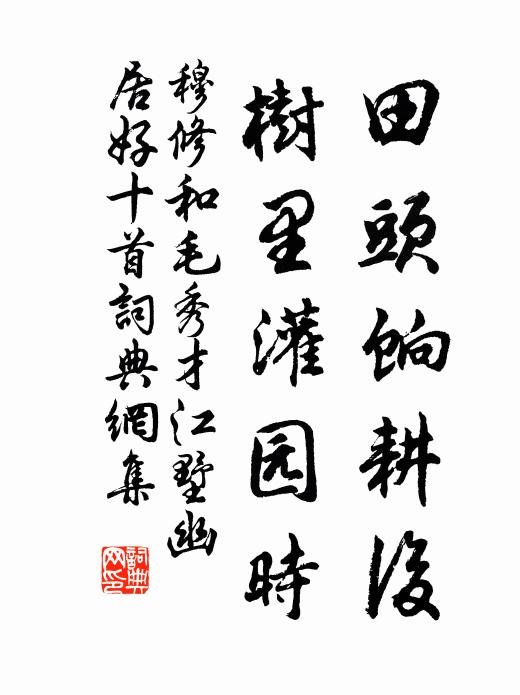 田頭餉耕後
樹里灌园時
穆修和毛秀才江墅幽
居好十首詞典網集
詞典网印